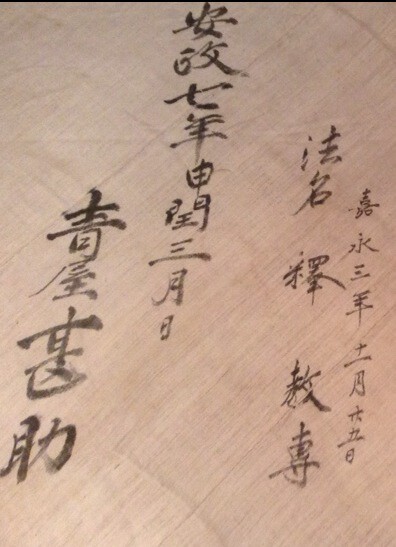 嘉永三年十一月廿九日
法名 釋 敎專
安政七年申閏三月日
屋甚助